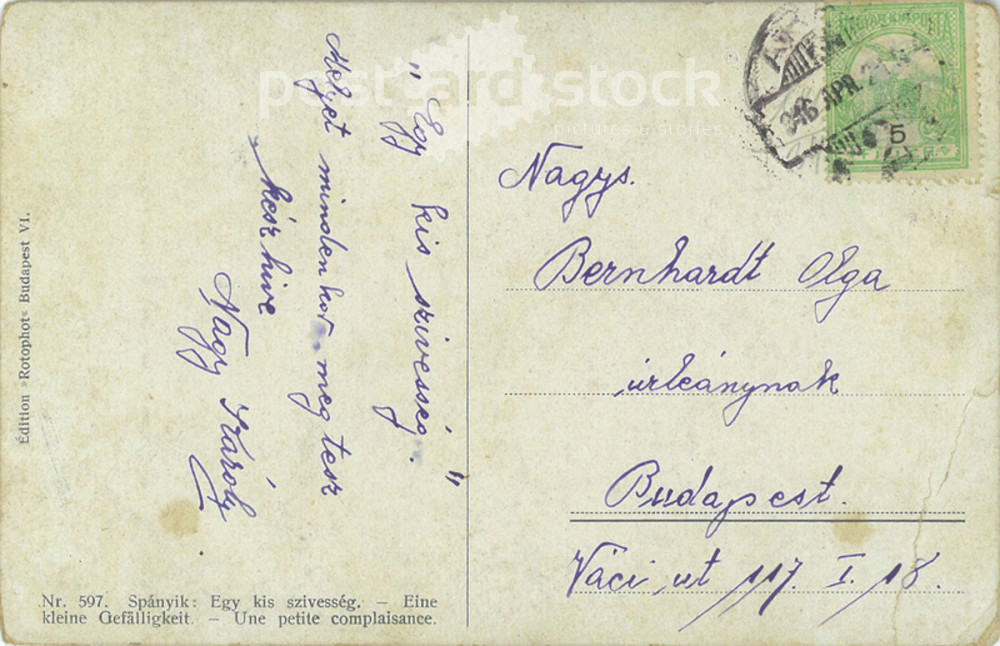 „Egy kis szivesség."
Melyet mindenkor meg tesz
kész hive
Nagy Károly
Nagys.
Bernhardt Olga
úrleánynak
Budapest.
Váci út 117. I. 18.
Édition »Rotophot« Budapest VI.
Nr. 597. Spányik: Egy kis szivesség. — Eine
kleine Gefälligkeit. — Une petite complaisance.
916 APR. 2
MAGYAR KIR. POSTA
5
postcard stock
pictures & stories